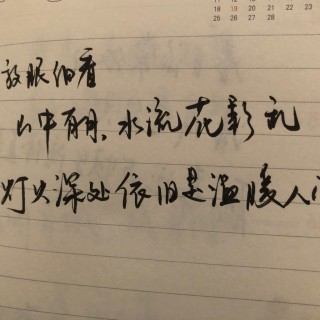 18 19 20 21 22 23
25 26 27 28 29 30
放眼细看
山中有月，水流花影乱
灯火深处依旧是温暖人